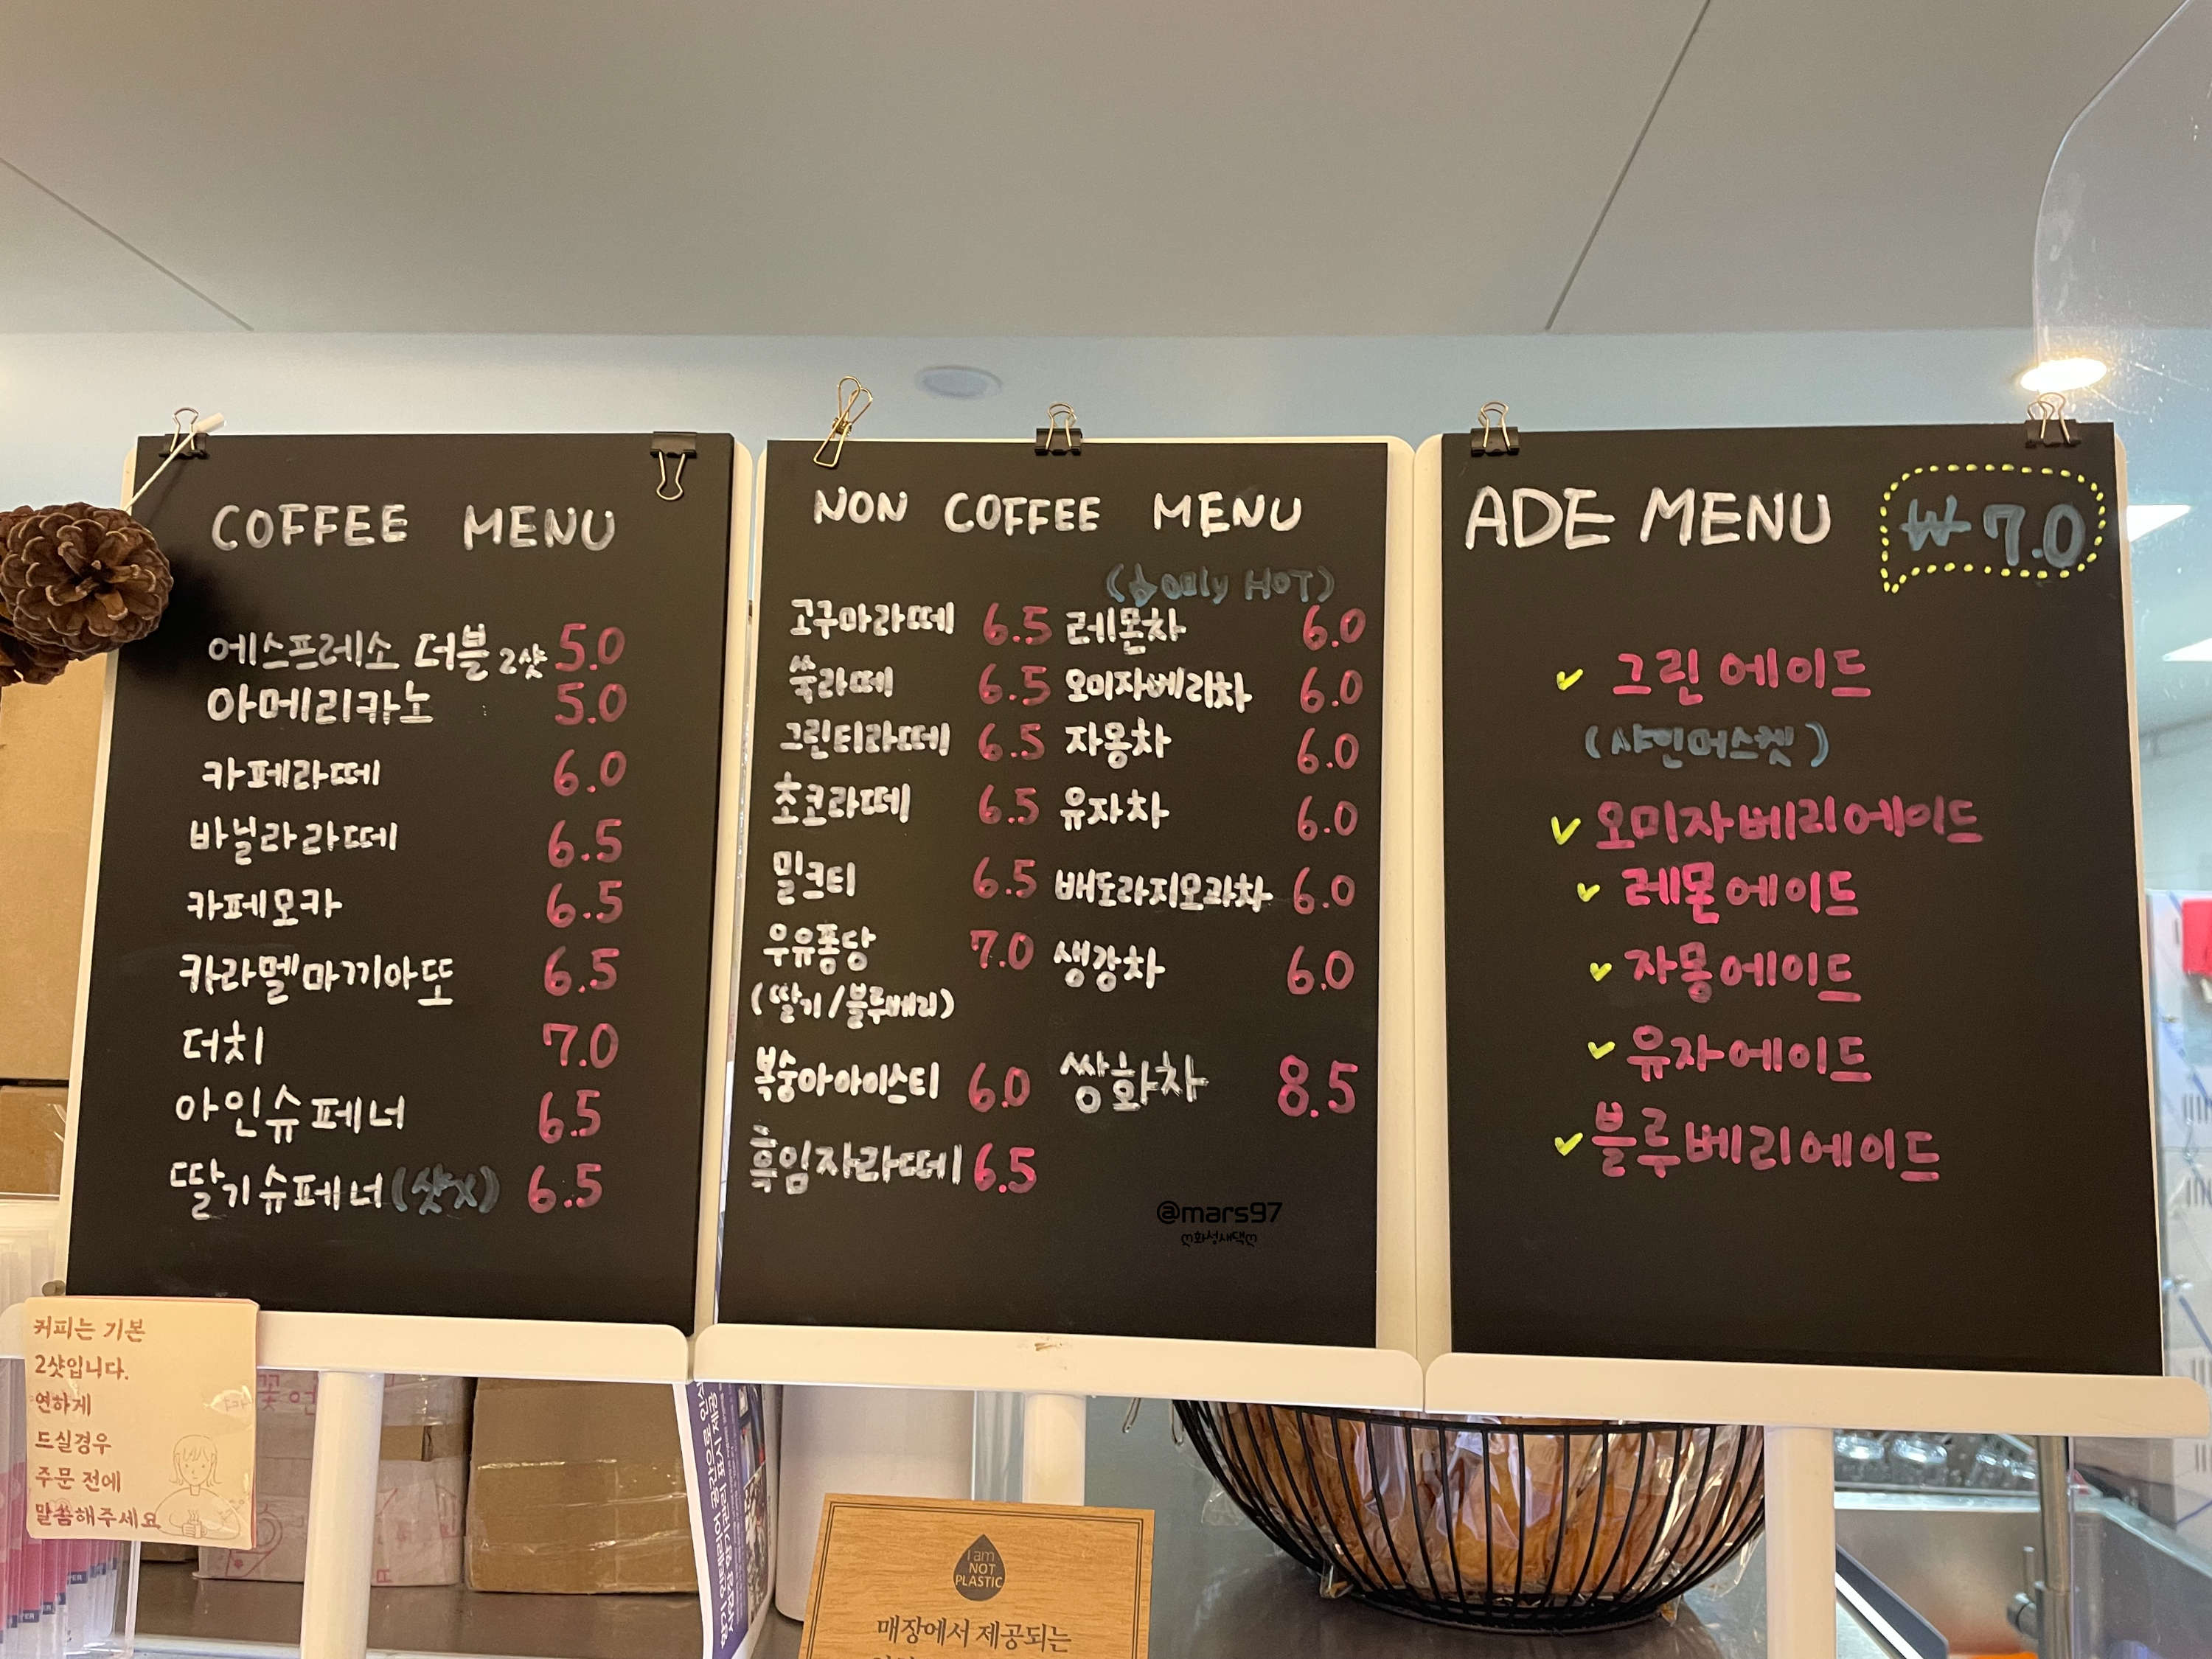 COFFEE MENU
에스프레소 더블 2샷 5.0
아메리카노 5.0
카페라떼 6.0
바닐라라떼 6.5
카페모카 6.5
카라멜마끼아또 6.5
더치 7.0
아인슈페너 6.5
딸기슈페너(샷X) 6.5
NON COFFEE MENU
고구마라떼 6.5
쑥라떼 6.5
그린티라떼 6.5
초코라떼 6.5
밀크티 6.5
우유퐁당 7.0
(딸기/블루베리)
복숭아아이스티 6.0
흑임자라떼 6.5
only HOT)
레몬차 6.0
오미자베리차 6.0
자몽차 6.0
유자차 6.0
배도라지모과차 6.0
생강차 6.0
쌍화차 8.5
@mars97
ღ화성새댁ღ
ADE MENU ₩7.0
그린에이드
(샤인머스켓)
오미자베리에이드
레몬에이드
자몽에이드
유자에이드
블루베리에이드
커피는 기본
2샷입니다.
연하게
드실경우
주문 전에
말씀해주세요
I am
NOT
PLASTIC
매장에서 제공되는